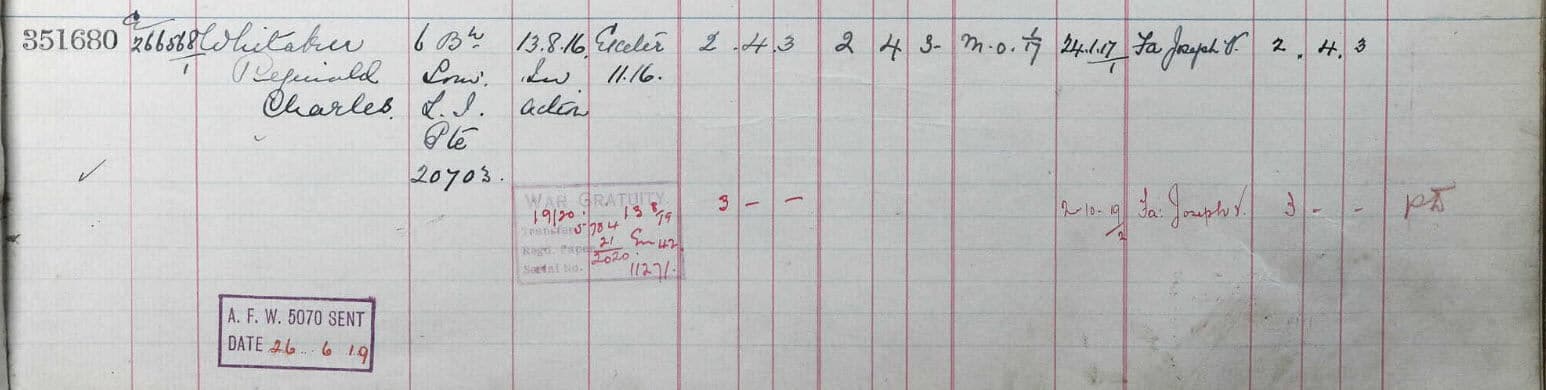 351680 E/266568/1 Whitaker 6 Bn 13.8.16 Exeter 2 . 4 . 3 2 4 3- M.O. 1/17 24.1.17/1 Fa Joseph V. 2 . 4 . 3
Reginald Som. In 11.16.
Charles. L. I. action
Pte
20703.
WAR GRATUITY 3 - - 2-10-19/2 Fa: Joseph V. 3 - -
19/20. 13 8/19
Transfer 5784
Regd. Paper 21/2020 En 42.
Serial No. 11271.
A. F. W. 5070 SENT
DATE 26 6 19